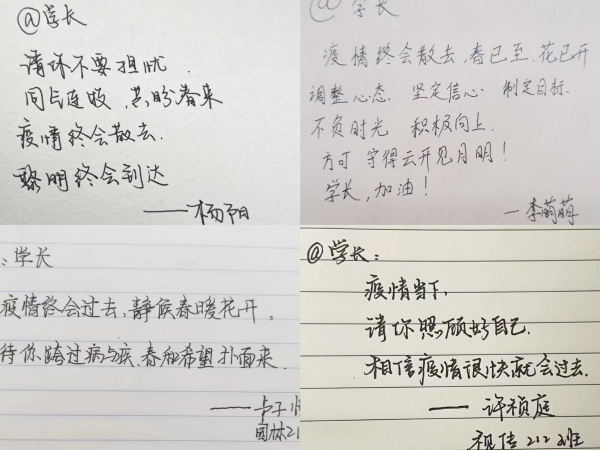 @学长
请你不要担忧
同气连枝,共盼春来
疫情终会散去.
黎明终会到达
——杨阳
@学长
疫情终会散去,春已至.花已开
调整心态. 坚定信心 制定目标.
不负时光 积极向上.
方可 守得云开见月明!
学长,加油!
—李萌萌
:学长
疫情终会过去,静候春暖花开。
待你跨过病与疾.春和希望扑面来.
——卢子
园林21
@学长:
疫情当下,
请你照顾好自己.
相信疫情很快就会过去.
—— 许祯庭
视传212班